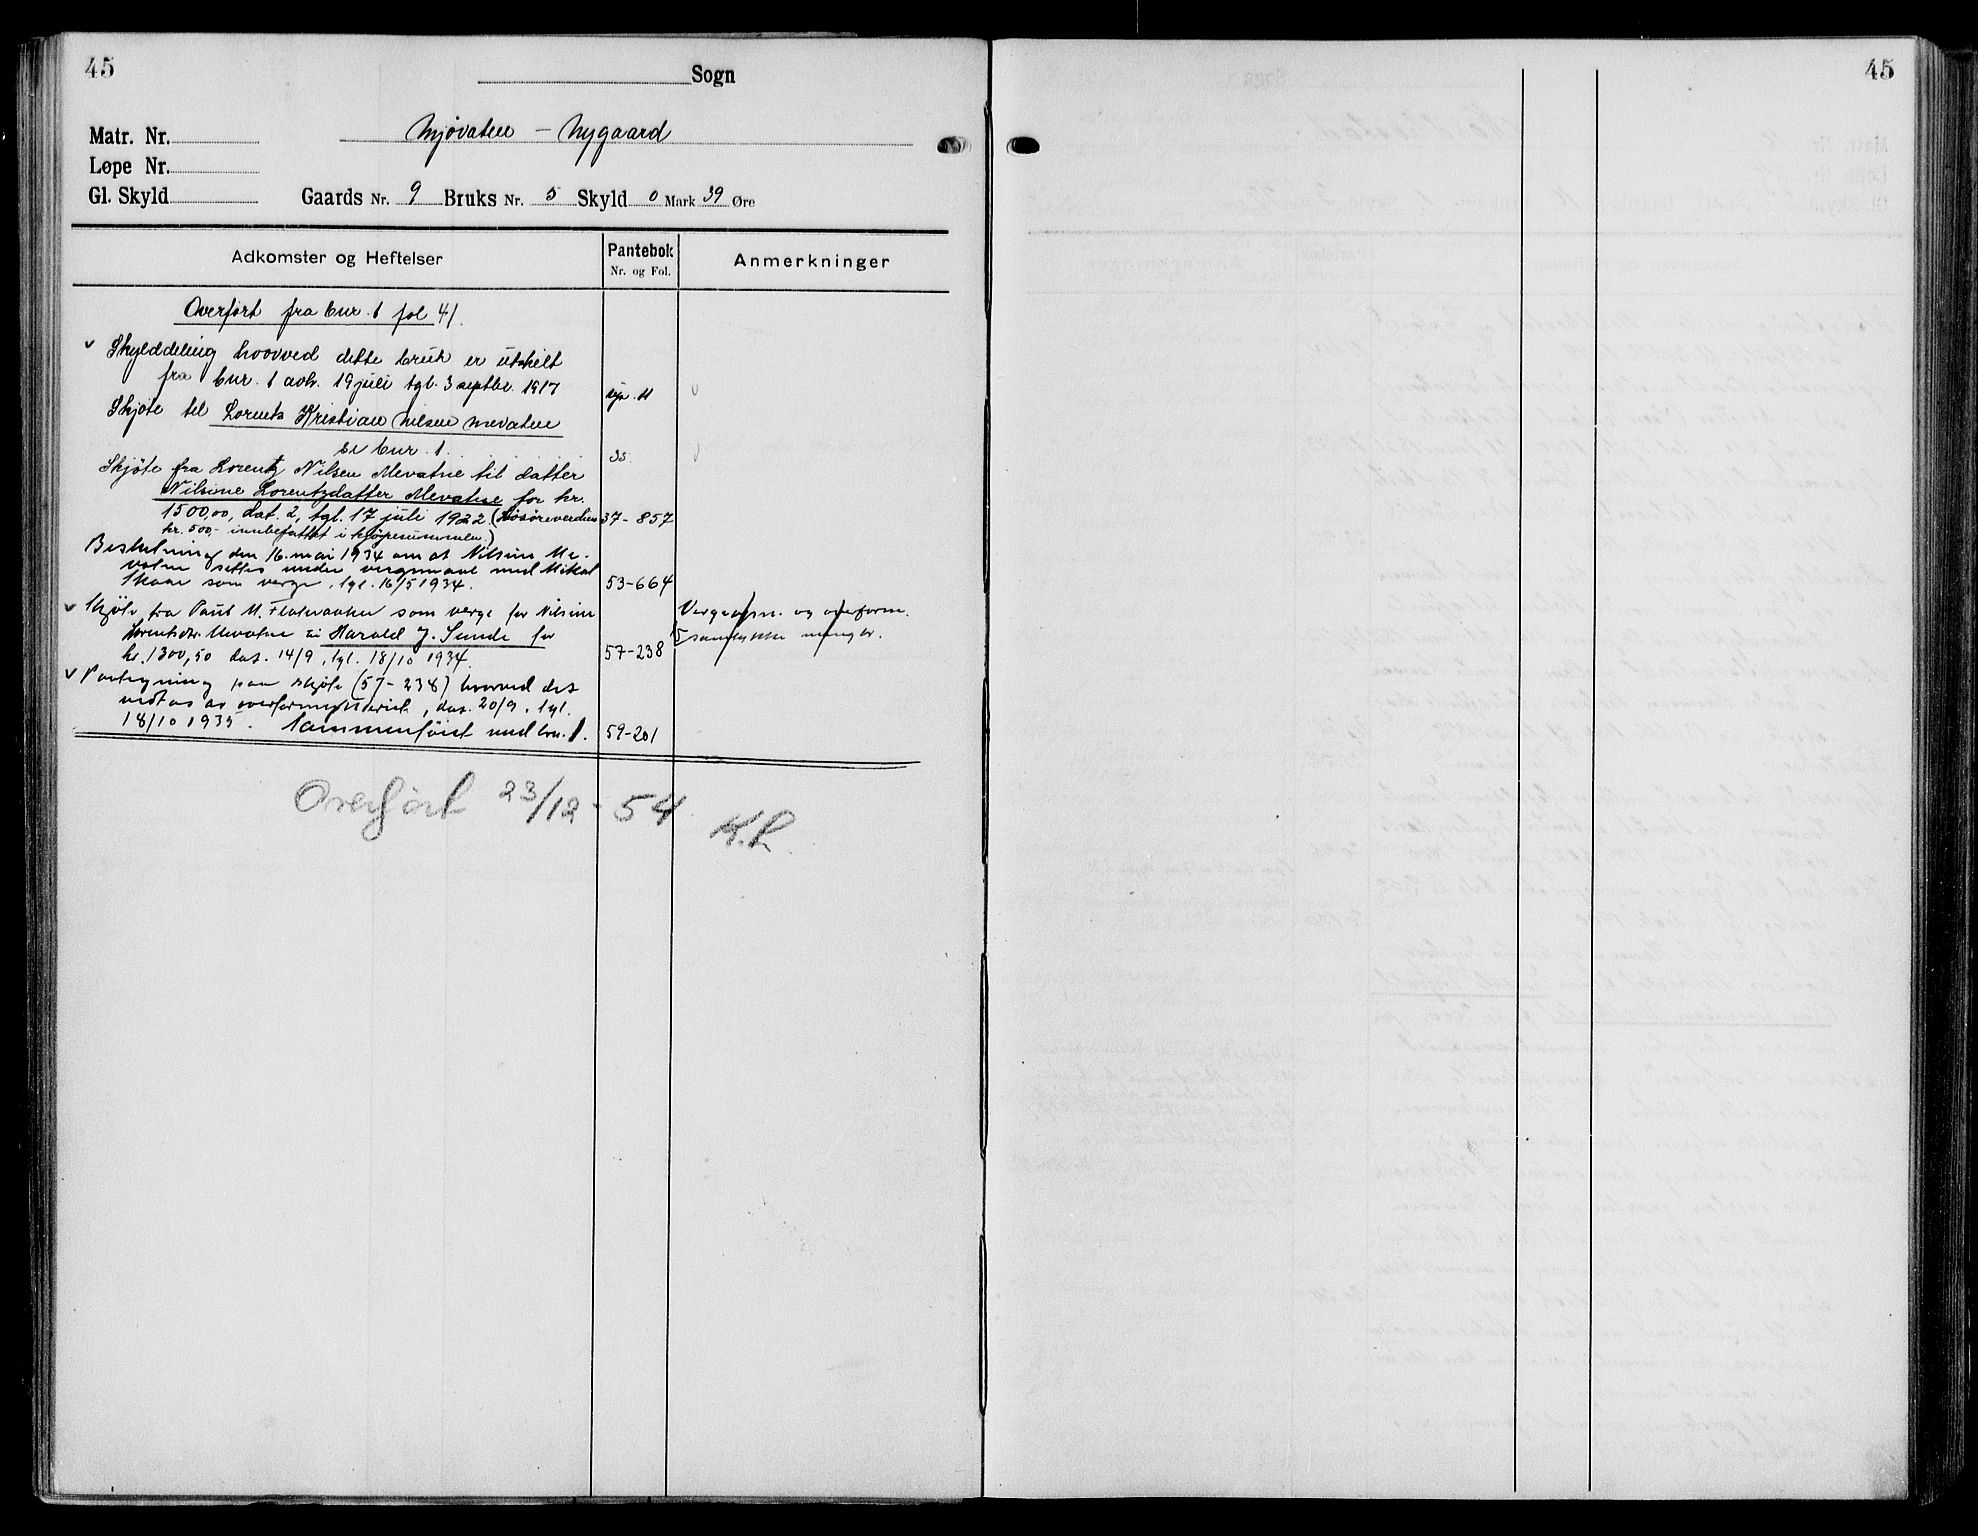 45
Sogn
Matr. Nr.
Mjøvatne - Nygaard
Løpe Nr.
Gl. Skyld Gaards Nr. 9 Bruks Nr. 5 Skyld 0 Mark 39 Øre
Adkomster og Heftelser Pantebok Nr. og Fol. Anmerkninger
Overført fra bnr. 1 fol 41.
Skylddeling hvorved dette bruk er utskilt
fra bnr. 1 avh. 19 juli tgl. 3 septbr. 1917
Skjøte til Lorents Kristian Nilsen Mevatne
se bnr. 1. 33
Skjøte fra Lorentz Nilsen Mevatne til datter
Nilsine Lorentzdatter Mevatne for kr.
1500,00, dat. 2, tgl. 17 juli 1922 (Løsøreverdien 37-857
kr. 500,- innbefattet i kjøpesummen.)
Beslutning den 16. mai 1934 om at Nilsine Me-
vatne settes under vergemaal med Mikal
Skaar som verge, tgl. 16/5 1934. 53-664
Skjøte fra Paul M. Flatevatn som verge for Nilsine
Lorentsdtr. Mevatne til Harald J. Sunde for
kr. 1300,50 dat. 14/9, tgl. 18/10 1934. 57-238
Vergeopn. og overform.
samtykke mangler.
Paategning paa skjøte (57-238) hvorved det
vedtas av overformynderiet, dat. 20/9, tgl.
18/10 1935. Sammenføiet med bnr. 1. 59-201
Overført 23/12-54
K.L.
45